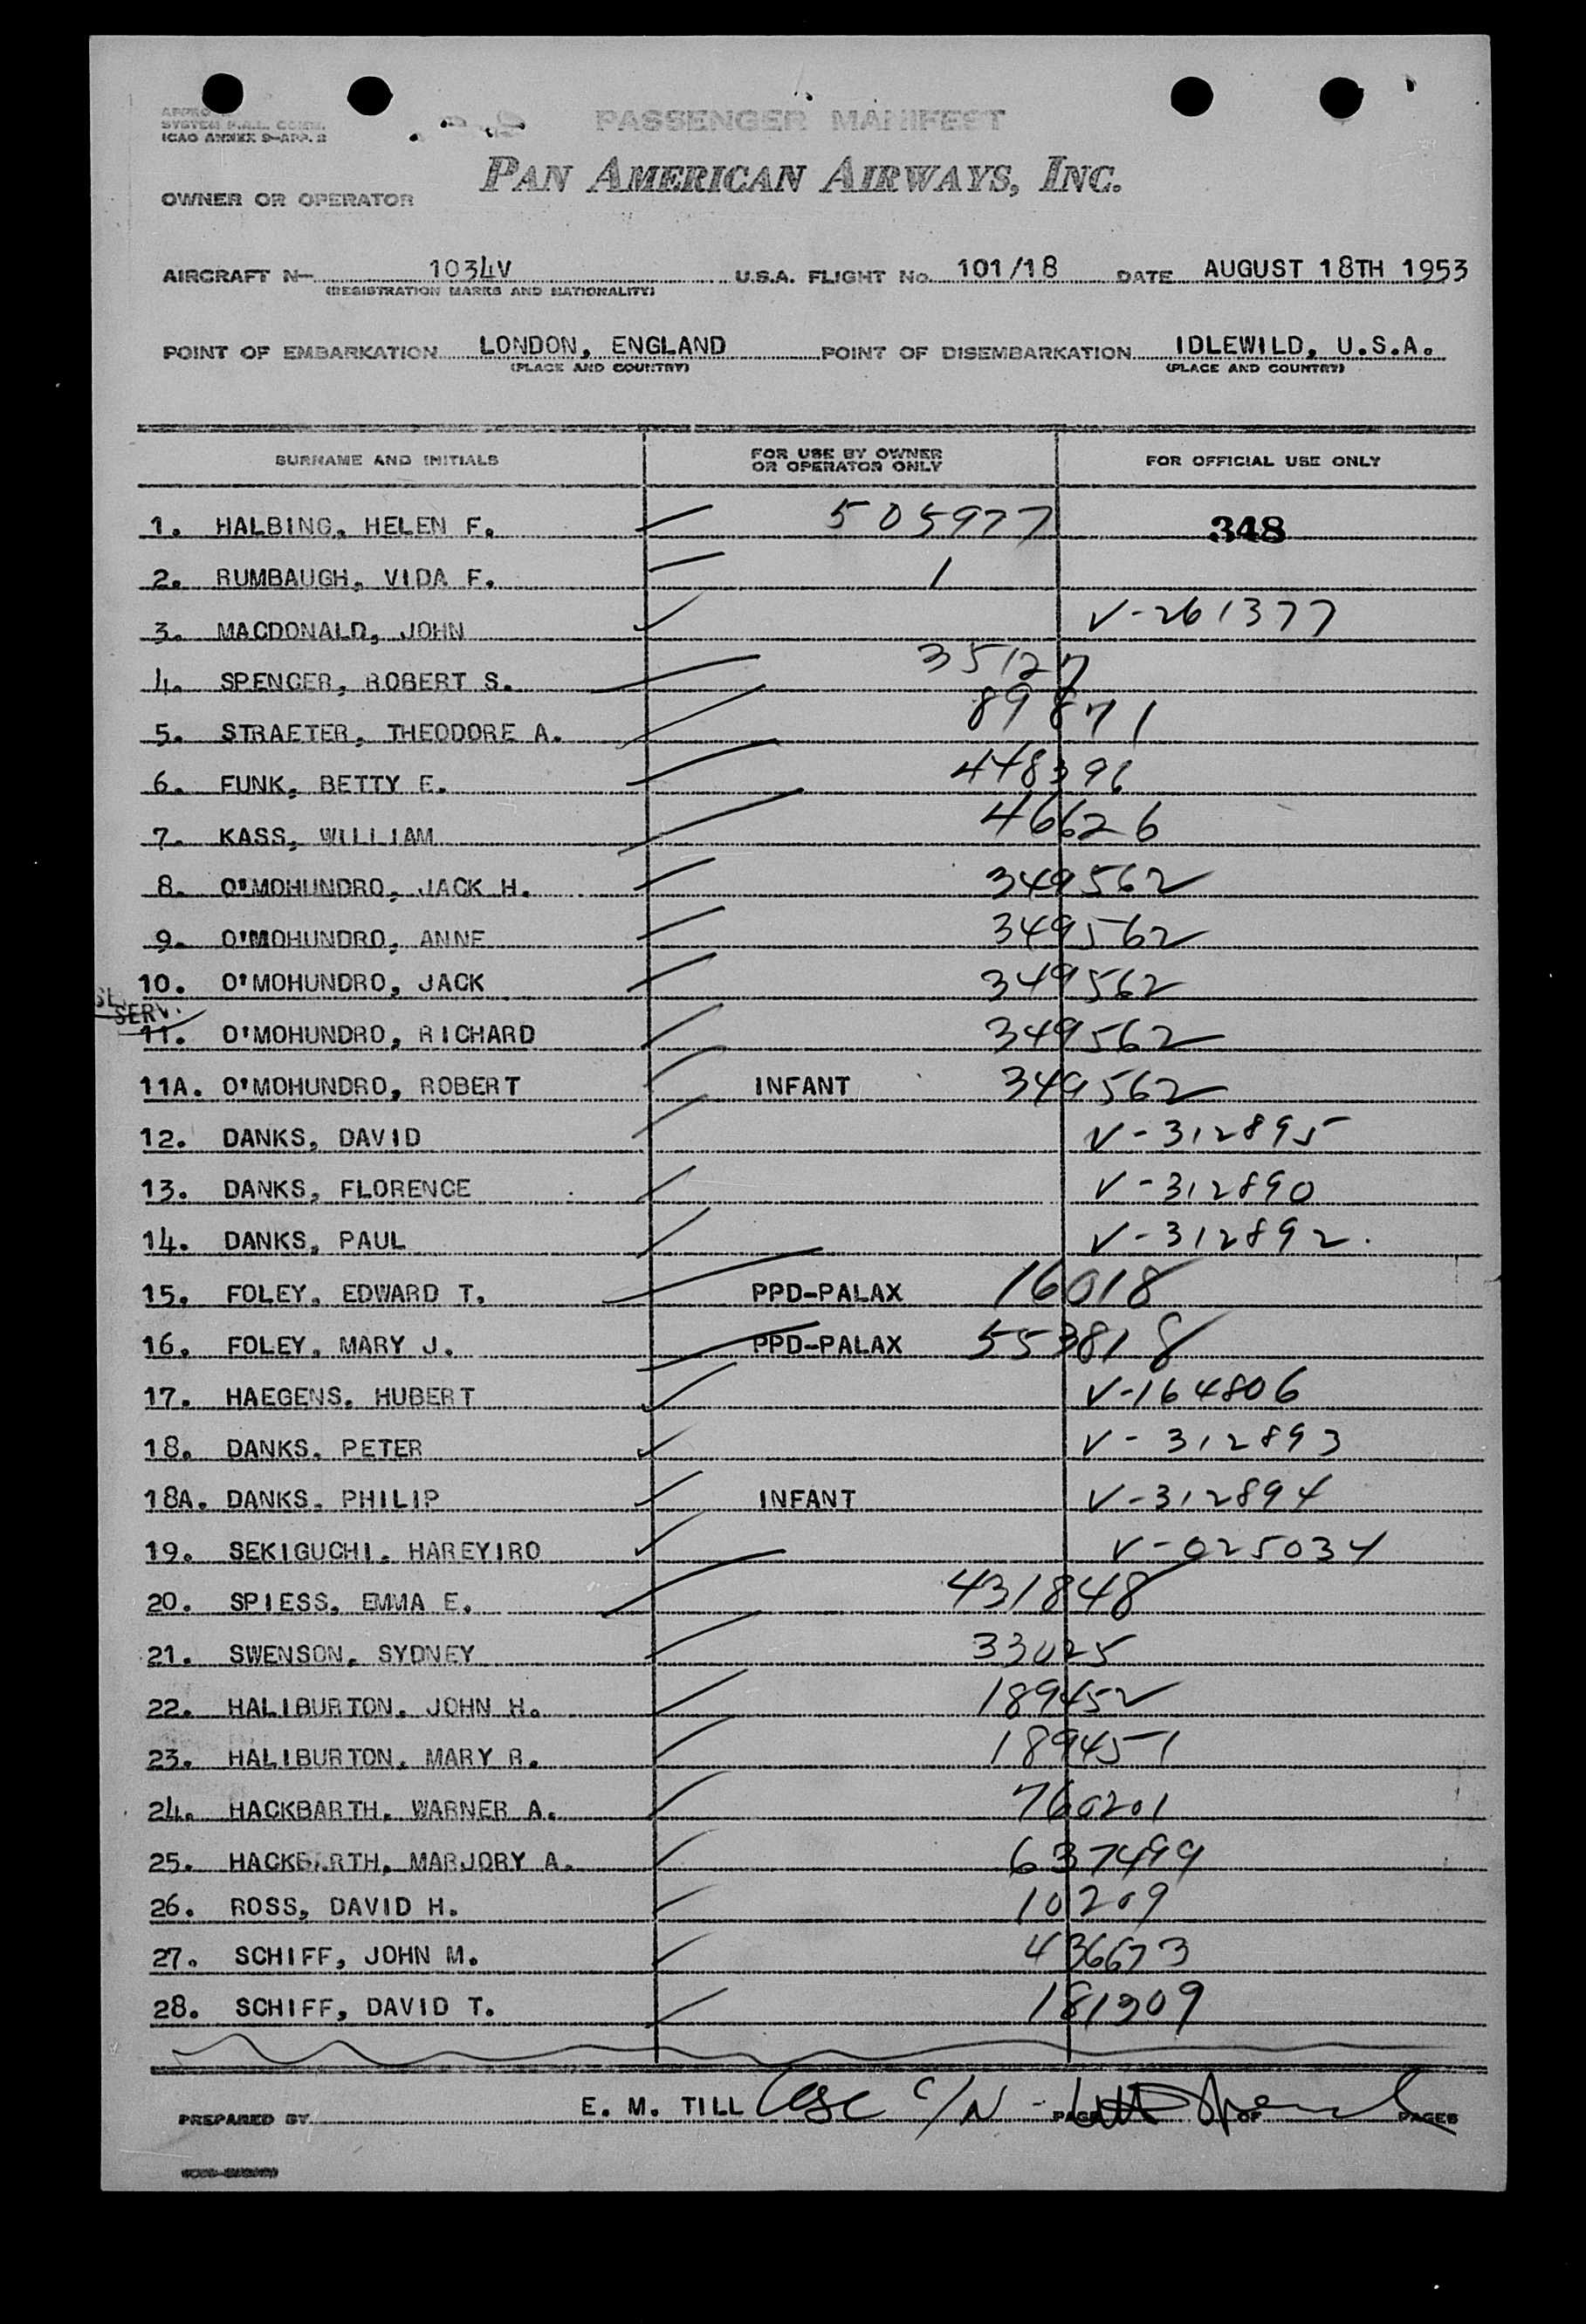 SYSTEM P.A.L. COMM.
ICAO ANNEX 9-APP. 2
PASSENGER MANIFEST
PAN AMERICAN AIRWAYS, INC.
OWNER OR OPERATOR
AIRCRAFT N— 1034V U.S.A. FLIGHT No. 101/18 DATE AUGUST 18TH 1953
(REGISTRATION MARKS AND NATIONALITY)
POINT OF EMBARKATION LONDON, ENGLAND POINT OF DISEMBARKATION IDLEWILD, U.S.A.
(PLACE AND COUNTRY) (PLACE AND COUNTRY)
SURNAME AND INITIALS FOR USE BY OWNER OR OPERATOR ONLY FOR OFFICIAL USE ONLY
1. HALBING, HELEN F. 505977 348
2. RUMBAUGH, VIDA F. 1
3. MACDONALD, JOHN V-261377
4. SPENCER, ROBERT S. 35127
5. STRAETER, THEODORE A. 89871
6. FUNK, BETTY E. 448396
7. KASS, WILLIAM 46626
8. O'MOHUNDRO, JACK H. 349562
9. O'MOHUNDRO, ANNE 349562
10. O'MOHUNDRO, JACK 349562
SERV.
11. O'MOHUNDRO, RICHARD 349562
11A. O'MOHUNDRO, ROBERT INFANT 349562
12. DANKS, DAVID V-312895
13. DANKS, FLORENCE V-312890
14. DANKS, PAUL V-312892.
15. FOLEY, EDWARD T. PPD-PALAX 16018
16. FOLEY, MARY J. PPD-PALAX 553818
17. HAEGENS, HUBERT V-164806
18. DANKS, PETER V-312893
18A. DANKS, PHILIP INFANT V-312894
19. SEKIGUCHI, HAREYIRO V-025034
20. SPIESS, EMMA E. 431848
21. SWENSON, SYDNEY 33025
22. HALIBURTON, JOHN H. 189452
23. HALIBURTON, MARY R. 189451
24. HACKBARTH, WARNER A. 760201
25. HACKBARTH, MARJORY A. 637499
26. ROSS, DAVID H. 10209
27. SCHIFF, JOHN M. 436673
28. SCHIFF, DAVID T. 181309
PREPARED BY E. M. TILL C/N PAGE OF PAGES